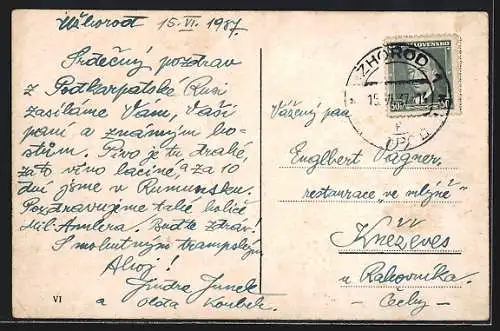 Užhorod 15. VI. 1937
Srdečný pozdrav
z Podkarpatské Rusi
zasíláme Vám, Vaší
paní a známým ho-
stům. Pivo je tu drahé,
za to víno laciné, a za 10
dní jsme v Rumunsku.
Pozdravujeme také holiče
Amlera. Buďte zdráv!
S mohutným trampským
Ahoj!
Jindra
a Ota
VI
ČESKOSLOVENSKO
50
UŽHOROD 1
15.VI.37
Vážený pan
Englbert Vagner,
restaurace „ve mlýně"
Kněževes
u Rakovníka.
Čechy